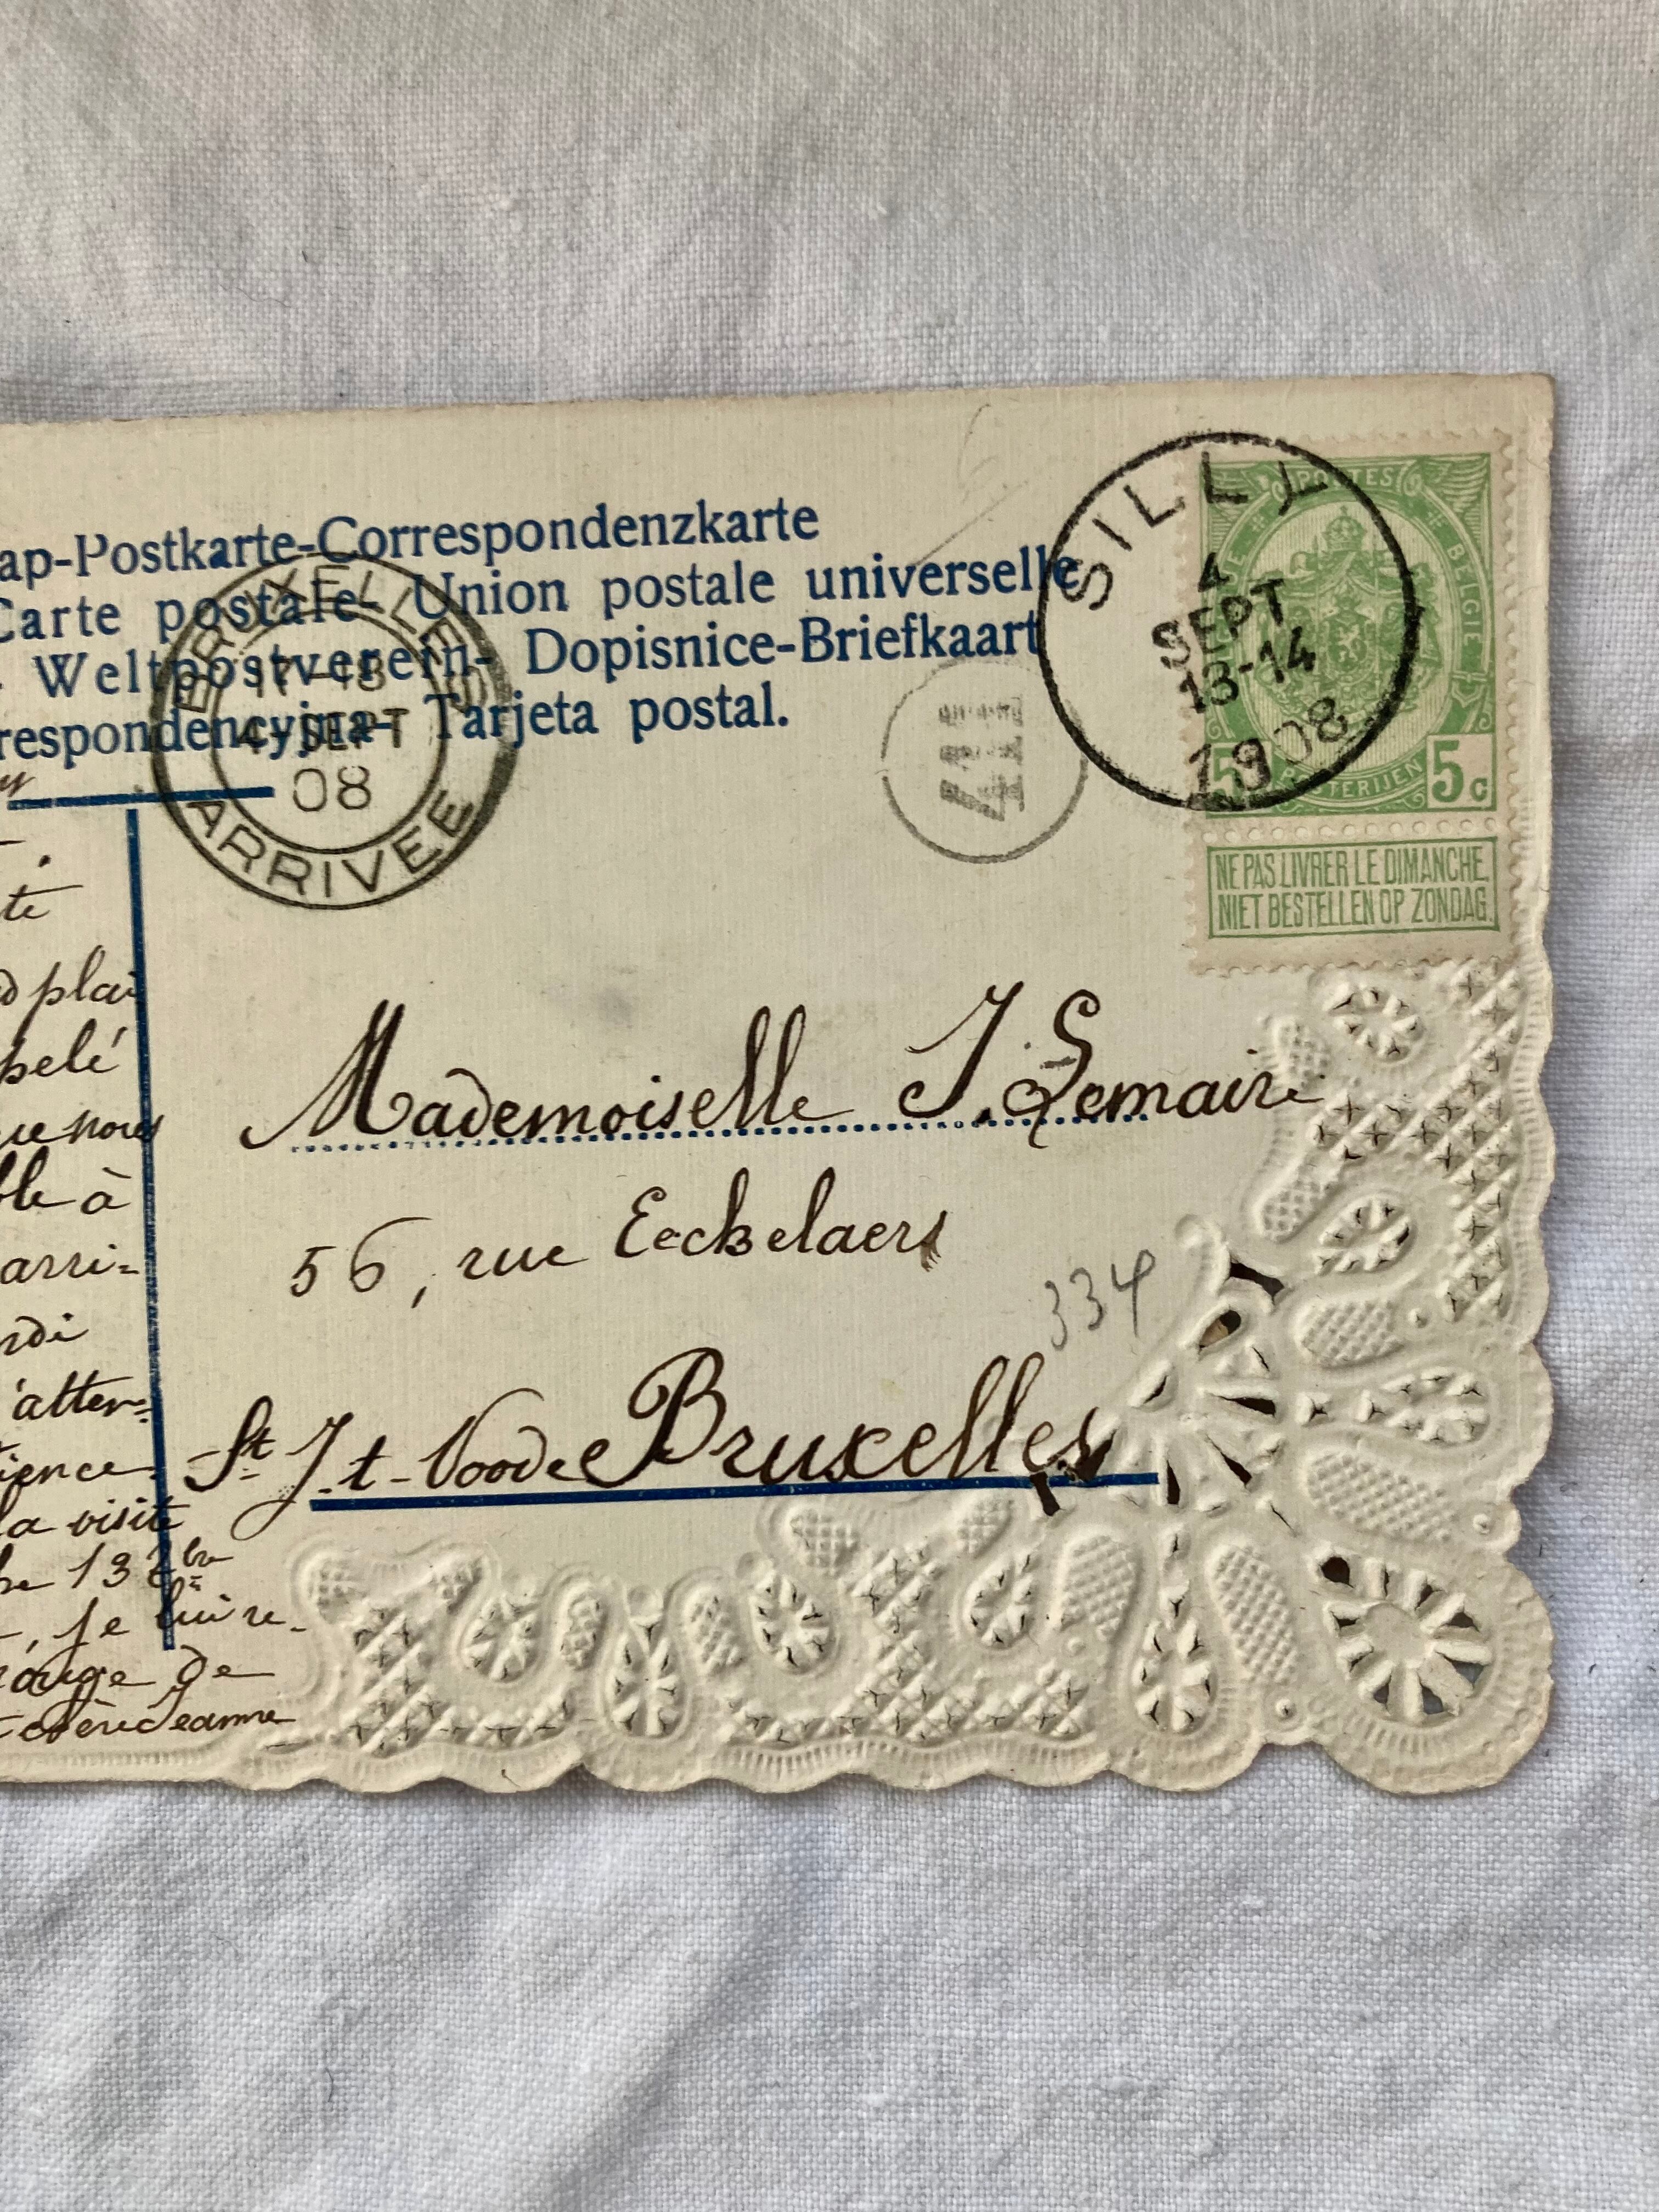 ap-Postkarte-Correspondenzkarte
Carte postale- Union postale universelle
- Weltpostverein- Dopisnice-Briefkaart
respondencyjna- Tarjeta postal.
BRUXELLES
17-18
4-SEPT
08
ARRIVEE
SILLY
4
SEPT
13-14
1908
POSTES
BELGIE
POSTERIJEN
5 5c
NE PAS LIVRER LE DIMANCHE,
NIET BESTELLEN OP ZONDAG.
Mademoiselle J. Lemaire
56, rue Eeckelaers
334
St J.t-Noode Bruxelles
te
plai
pelé
ble à
arri-
rdi
'atten-
ience
la visite
13 7bre
, je lui re-
de
Jeanne